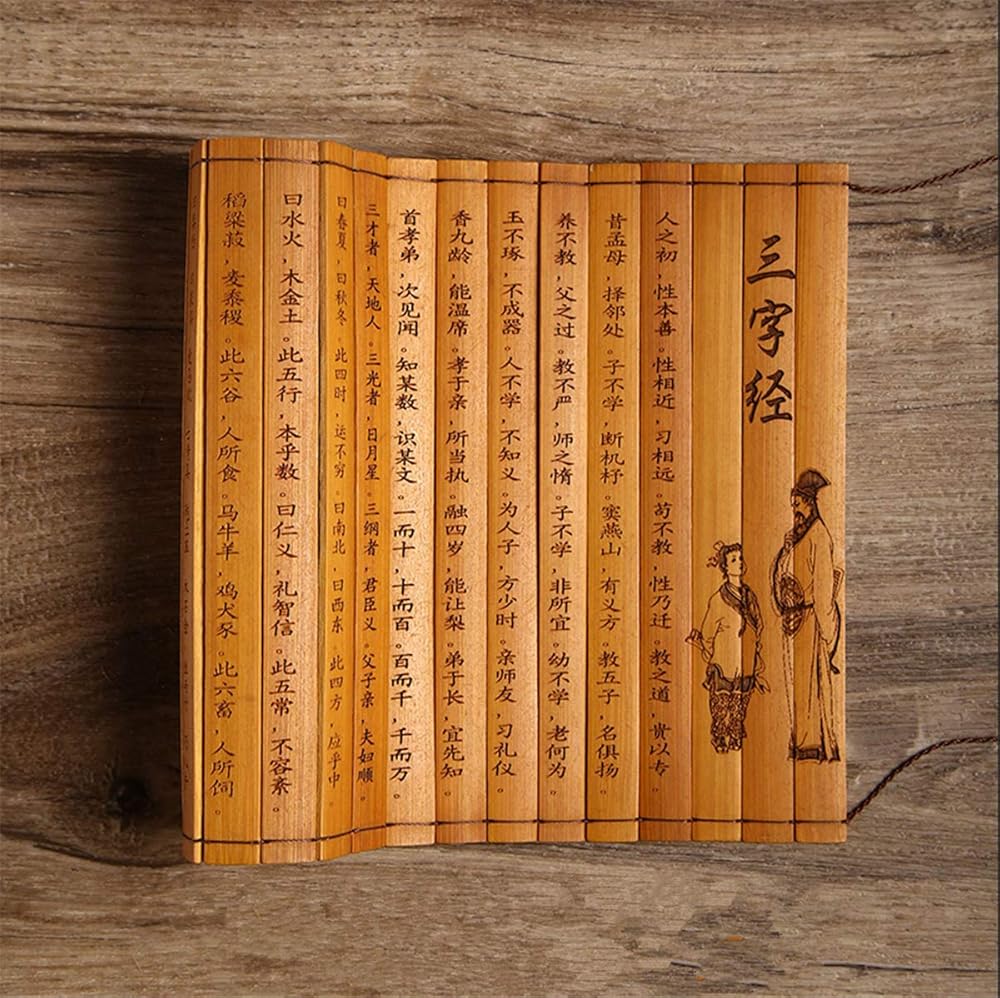 三字经
人之初，性本善。性相近，习相远。苟不教，性乃迁。教之道，贵以专。
昔孟母，择邻处。子不学，断机杼。窦燕山，有义方。教五子，名俱扬。
养不教，父之过。教不严，师之惰。子不学，非所宜。幼不学，老何为。
玉不琢，不成器。人不学，不知义。为人子，方少时。亲师友，习礼仪。
香九龄，能温席。孝于亲，所当执。融四岁，能让梨。弟于长，宜先知。
首孝弟，次见闻。知某数，识某文。一而十，十而百。百而千，千而万。
三才者，天地人。三光者，日月星。三纲者，君臣义。父子亲，夫妇顺。
曰春夏，曰秋冬。此四时，运不穷。曰南北，曰西东。此四方，应乎中。
曰水火，木金土。此五行，本乎数。曰仁义，礼智信。此五常，不容紊。
稻粱菽，麦黍稷。此六谷，人所食。马牛羊，鸡犬豕。此六畜，人所饲。